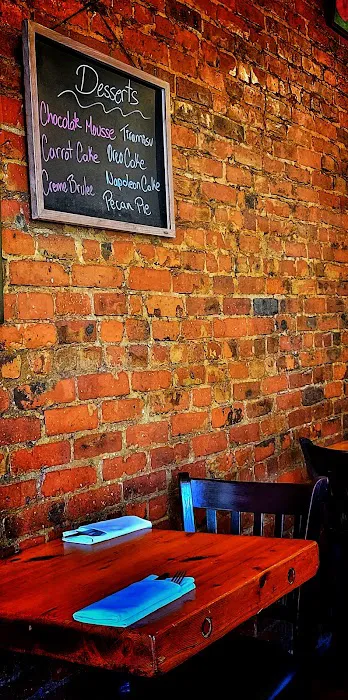 Desserts
Chocolate Mousse Tiramisu
Carrot Cake Oreo Cake
Creme Brulee Napoleon Cake
Pecan Pie